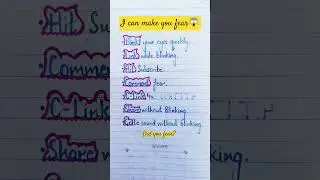 I can make you fear😱
Blink your eyes quickly.
Link while blinking.
Hit Subscribe.
Comment fear.
C-Link
Share without Blinking.
sound without blinking.
Did you fear?
Hit
Comme
C-Link
Share
I.T.P
king.